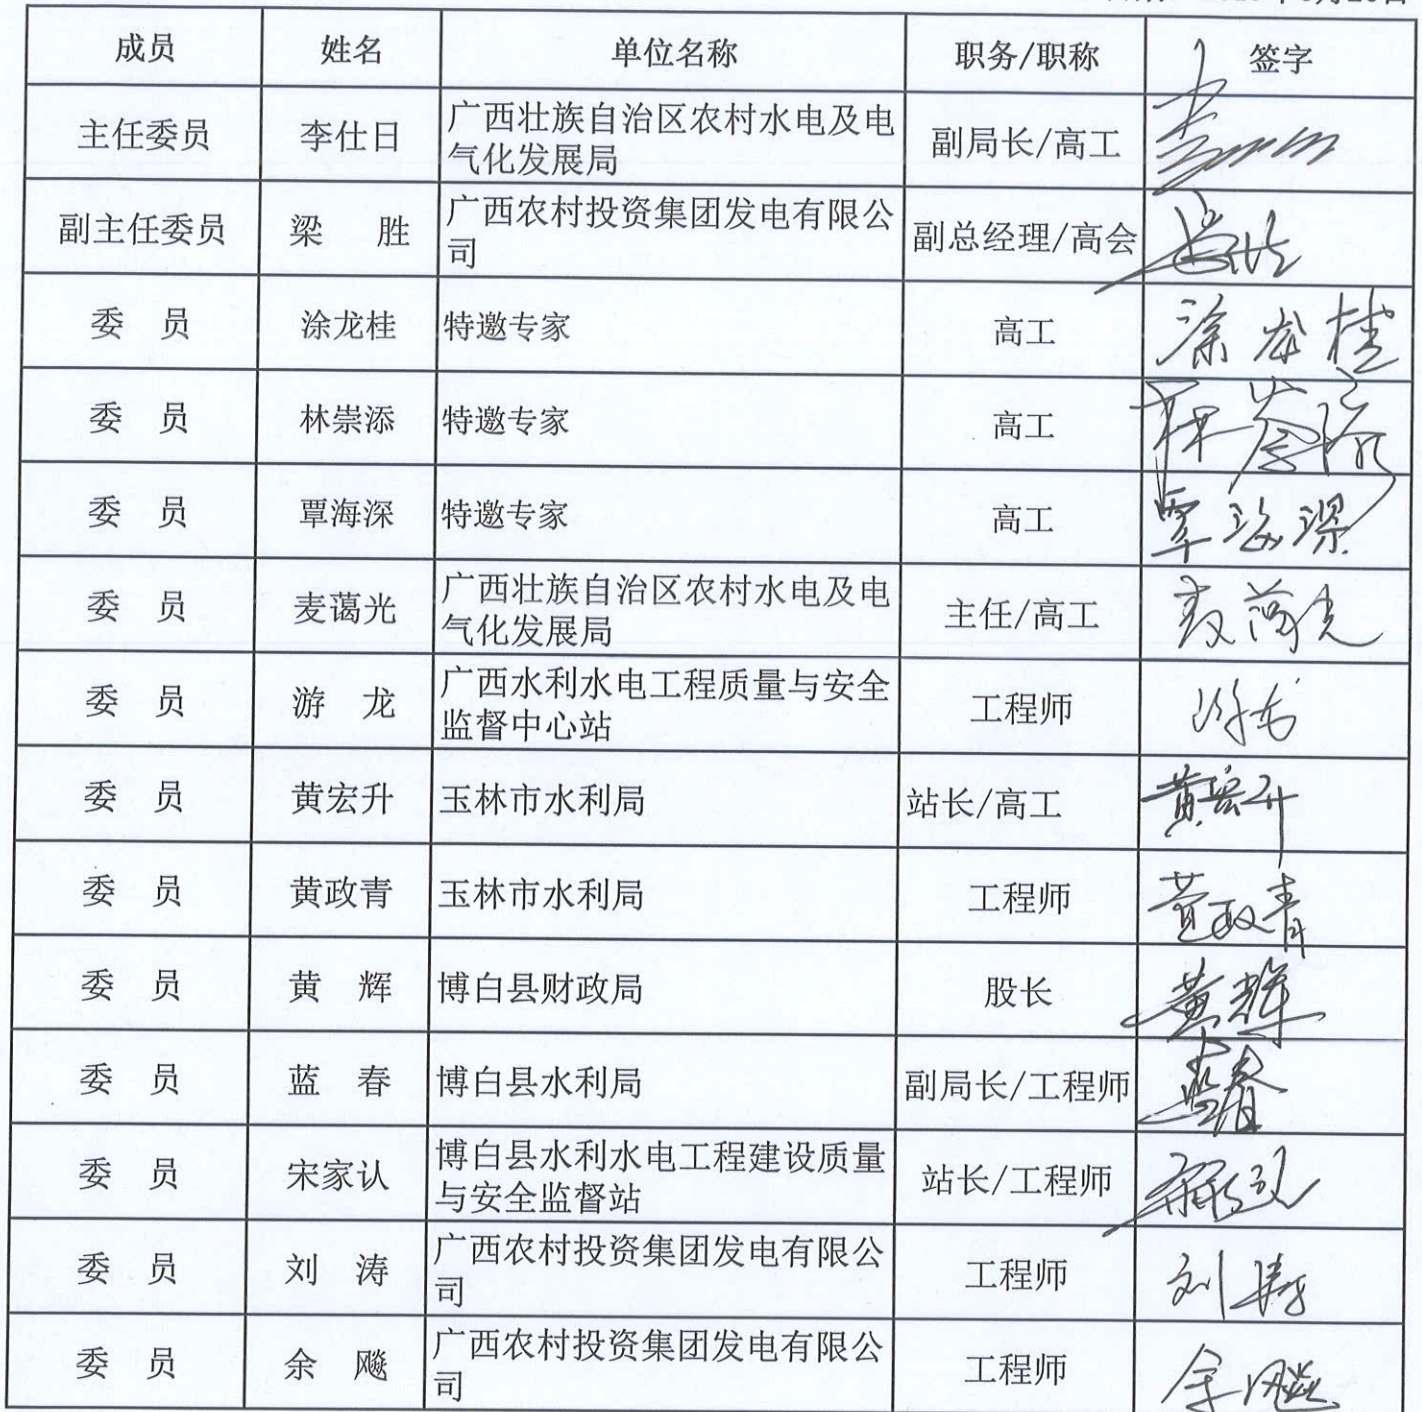 成员 姓名 单位名称 职务/职称 签字
主任委员 李仕日 广西壮族自治区农村水电及电 副局长/高工
气化发展局
副主任委员 梁 胜 广西农村投资集团发电有限公 副总经理/高会
司
委 员 涂龙桂 特邀专家 高工 涂龙桂
委 员 林崇添 特邀专家 高工 林崇添
委 员 覃海深 特邀专家 高工 覃海深
委 员 麦蔼光 广西壮族自治区农村水电及电 主任/高工 麦蔼光
气化发展局
委 员 游 龙 广西水利水电工程质量与安全 工程师 游龙
监督中心站
委 员 黄宏升 玉林市水利局 站长/高工 黄宏升
委 员 黄政青 玉林市水利局 工程师 黄政青
委 员 黄 辉 博白县财政局 股长 黄辉
委 员 蓝 春 博白县水利局 副局长/工程师 蓝春
委 员 宋家认 博白县水利水电工程建设质量 站长/工程师
与安全监督站
委 员 刘 涛 广西农村投资集团发电有限公 工程师 刘涛
司
委 员 余 飚 广西农村投资集团发电有限公 工程师 余飚
司